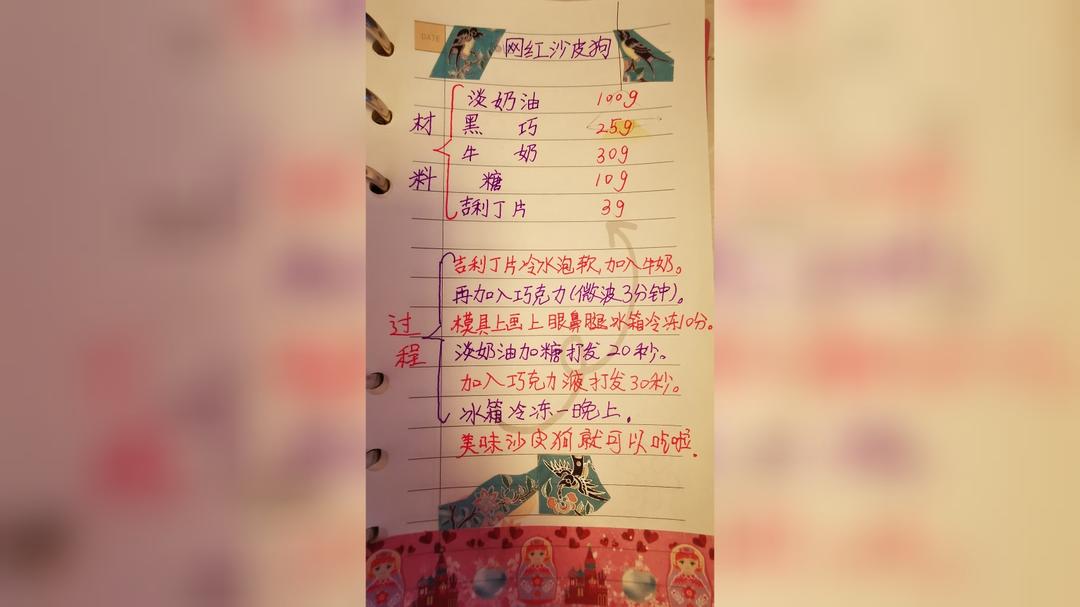 DATE
网红沙皮狗
淡奶油 100g
材 黑巧 25g
牛奶 30g
料 糖 10g
吉利丁片 3g
吉利丁片冷水泡软,加入牛奶。
再加入巧克力(微波3分钟)。
过 模具上画上眼鼻腿冰箱冷冻10分。
程 淡奶油加糖打发20秒。
加入巧克力液打发30秒。
冰箱冷冻一晚上.
美味沙皮狗就可以吃啦.